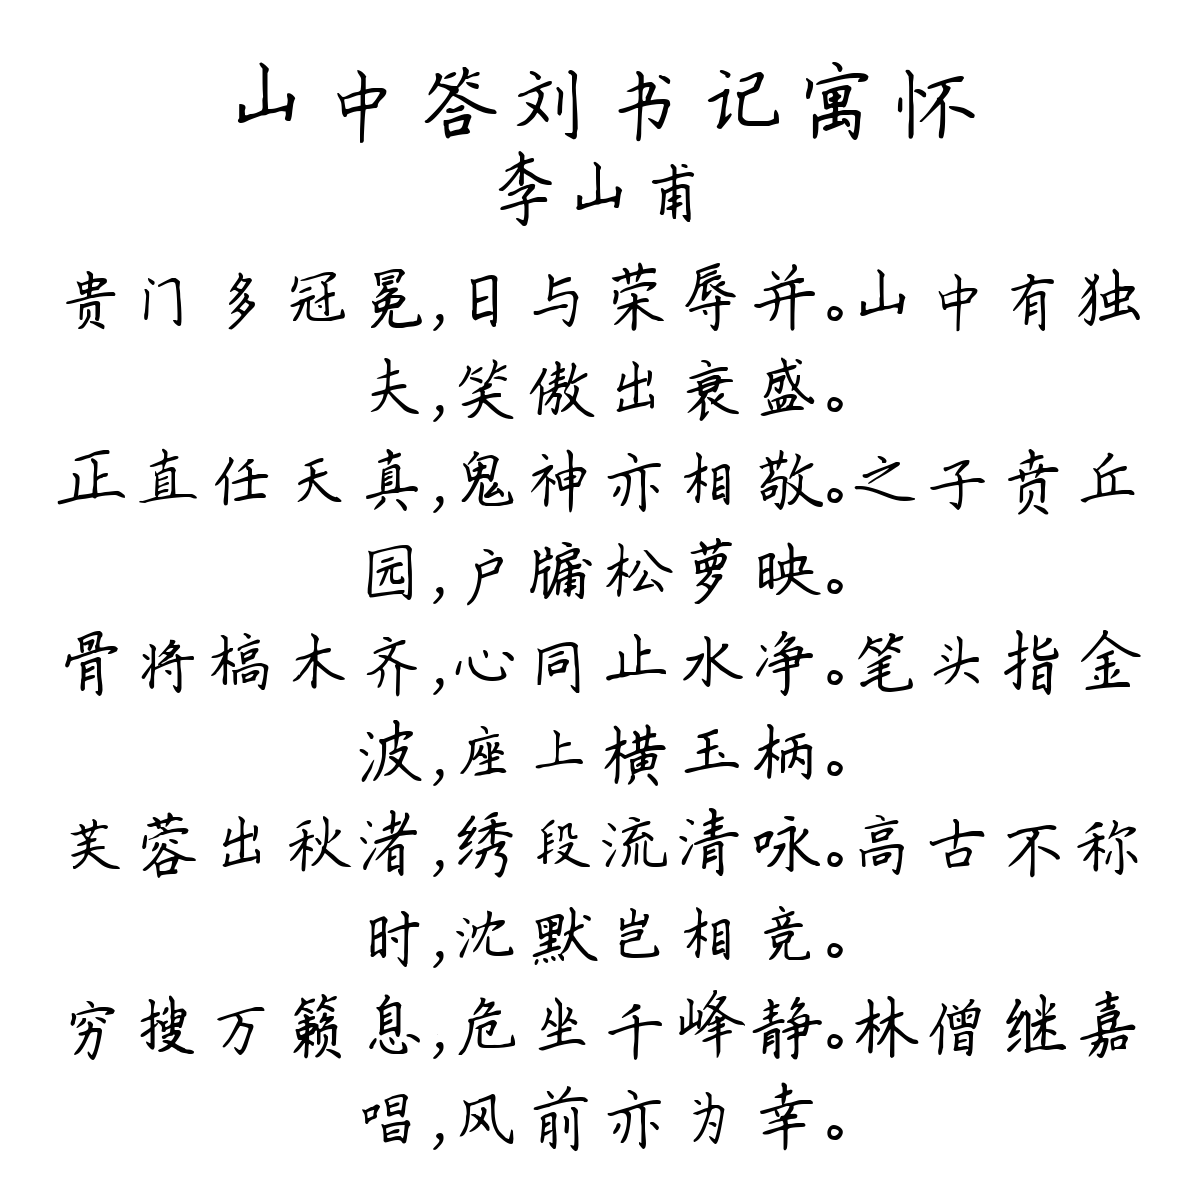 山中答刘书记寓怀
李山甫
贵门多冠冕,日与荣辱并。山中有独
夫,笑傲出衰盛。
正直任天真,鬼神亦相敬。之子贲丘
园,户牖松萝映。
骨将槁木齐,心同止水净。笔头指金
波,座上横玉柄。
芙蓉出秋渚,绣段流清咏。高古不称
时,沈默岂相竞。
穷搜万籁息,危坐千峰静。林僧继嘉
唱,风前亦为幸。